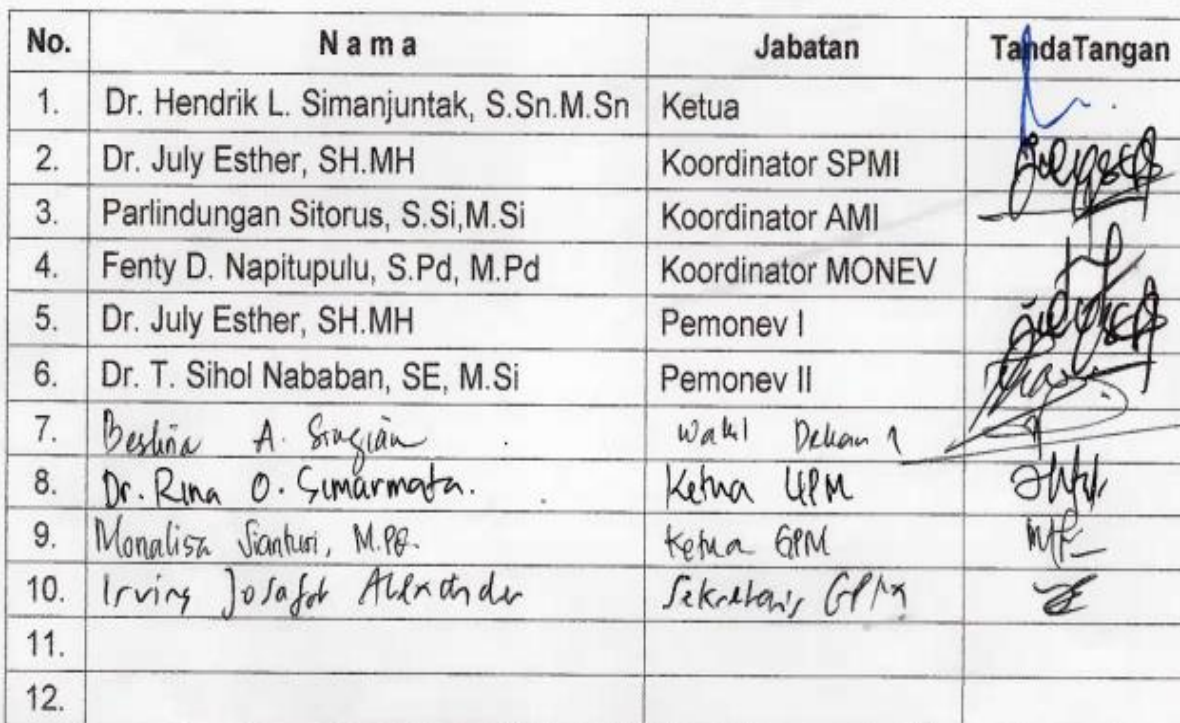 No. N a m a Jabatan TandaTangan
1. Dr. Hendrik L. Simanjuntak, S.Sn.M.Sn Ketua
2. Dr. July Esther, SH.MH Koordinator SPMI
3. Parlindungan Sitorus, S.Si,M.Si Koordinator AMI
4. Fenty D. Napitupulu, S.Pd, M.Pd Koordinator MONEV
5. Dr. July Esther, SH.MH Pemonev I
6. Dr. T. Sihol Nababan, SE, M.Si Pemonev II
7. A. Wakil Dekan 1
8. Dr. Rina O. Simarmata. Ketua UPM
9. Monalisa Sianturi, Ketua GPM
10. Irving Josafat Alexander Sekretaris GPM
11.
12.